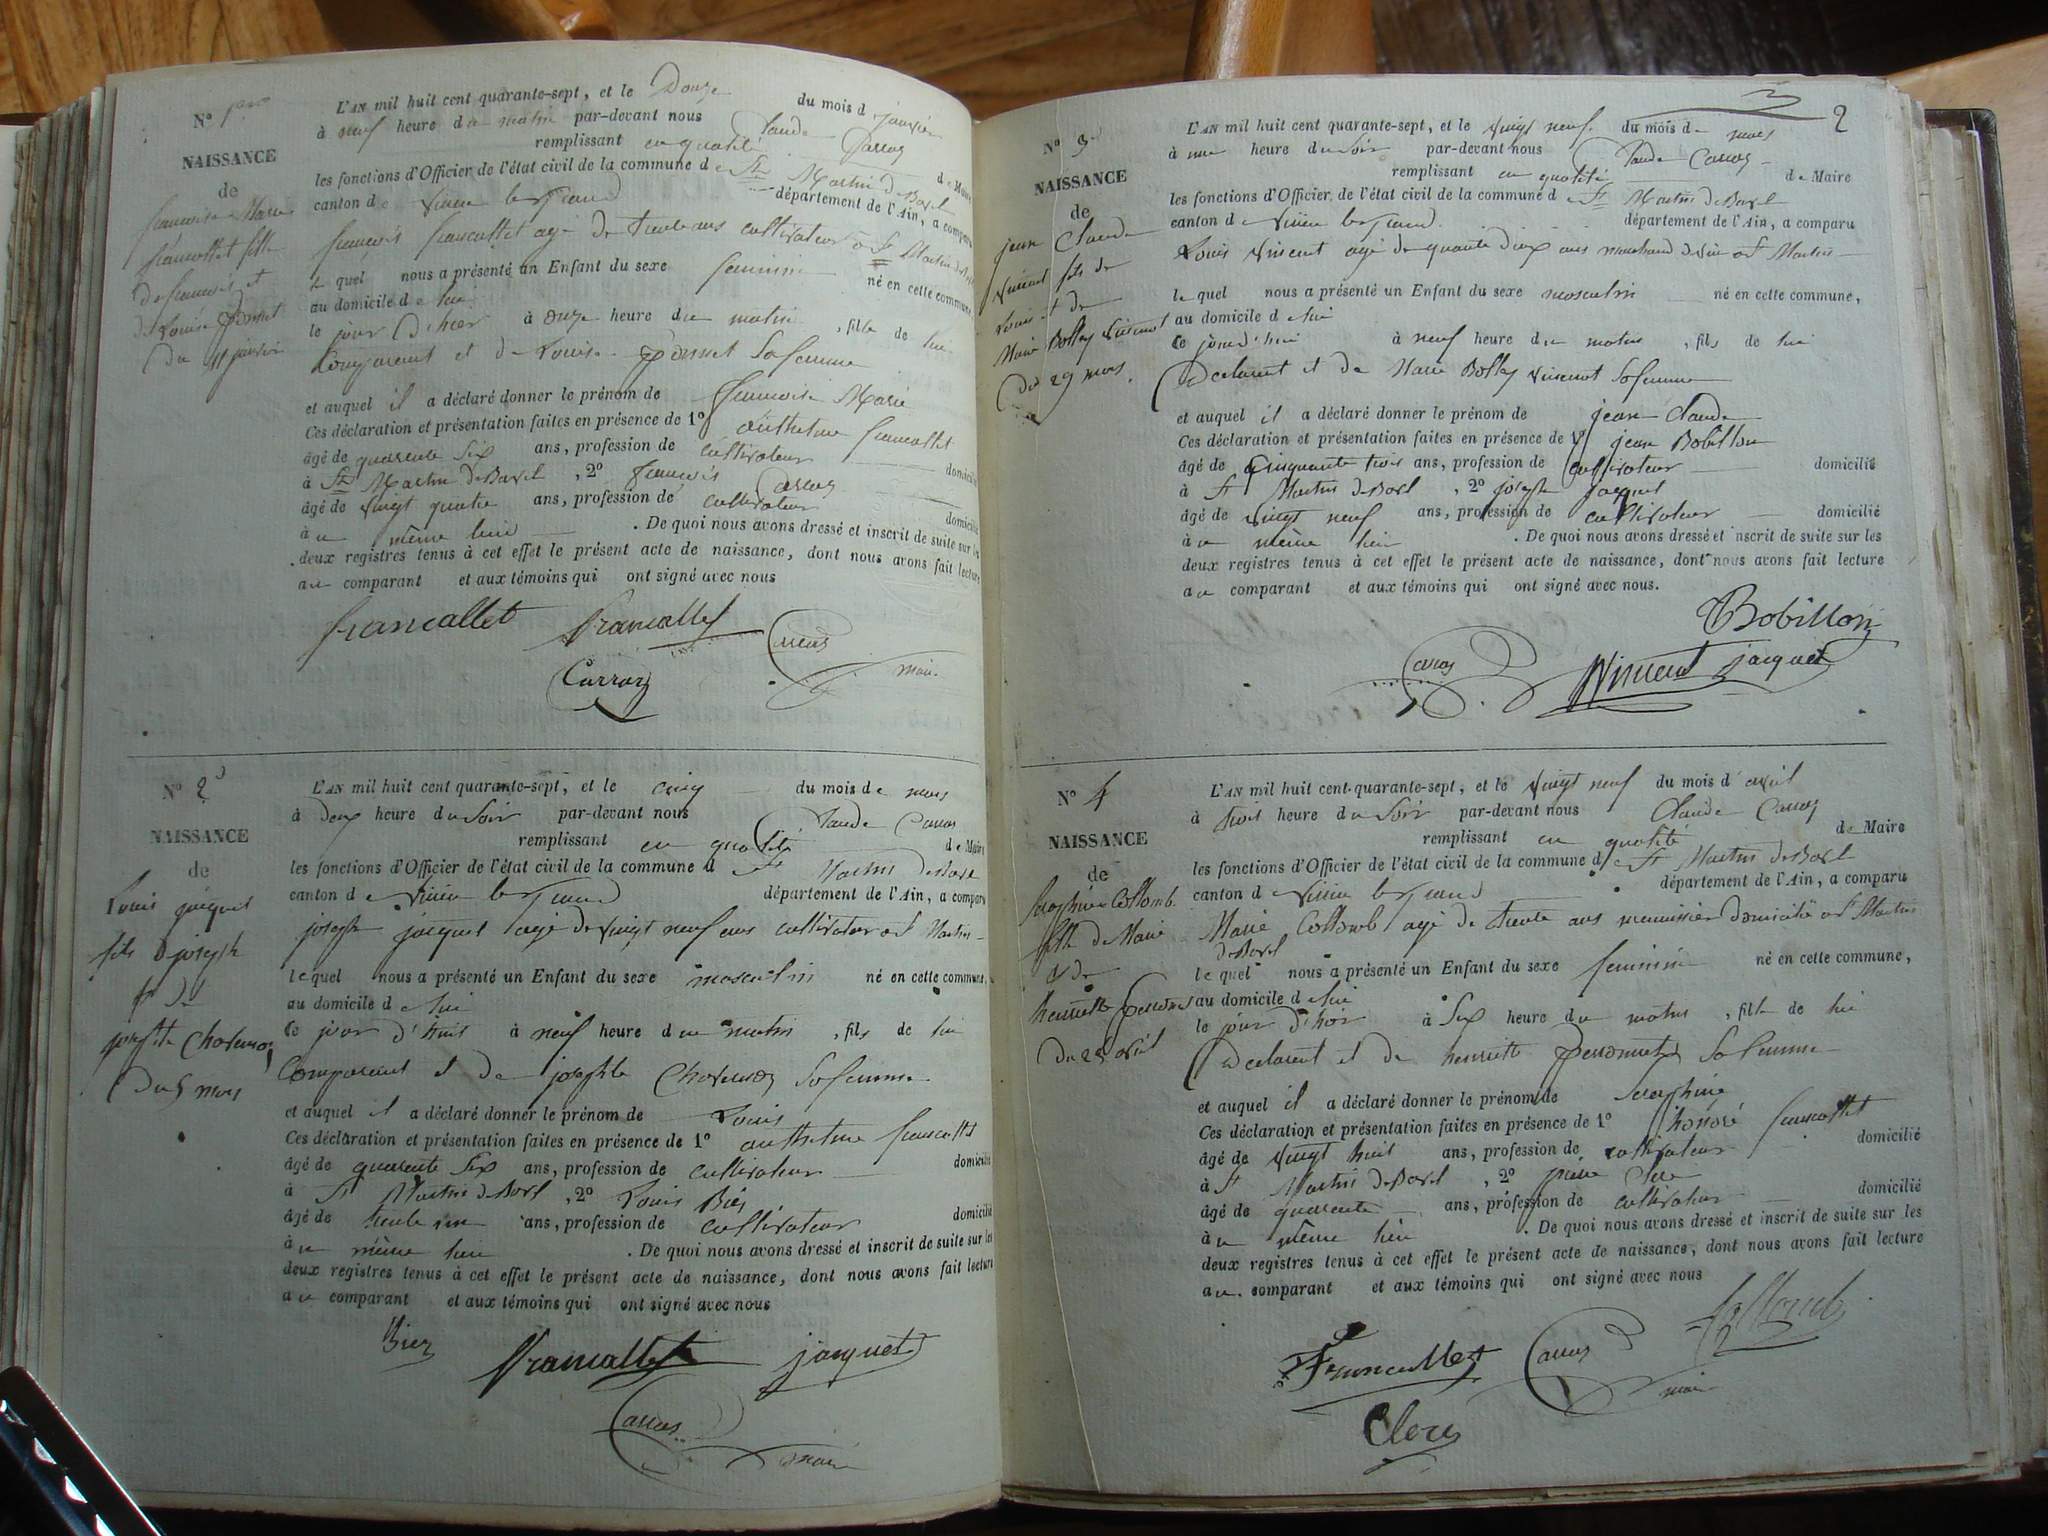 N° 1er
NAISSANCE
de
françoise Marie
francallet fille
de francois et
de Louise
du 11 janvier
L'AN mil huit cent quarante-sept, et le Douze du mois d janvier
à neuf heure du matin par-devant nous Claude Carraz
remplissant en qualité de Maire
les fonctions d'Officier de l'état civil de la commune de St Martin de Bavel
canton de virieu le grand département de l'Ain, a comparu
françois francallet agé de trente ans cultivateur à St Martin de Bavel
lequel nous a présenté un Enfant du sexe feminin né en cette commune
au domicile de lui
le jour d'hier à onze heure du matin, fille de lui
Comparant et de Louise sa femme
et auquel il a déclaré donner le prénom de françoise Marie
Ces déclaration et présentation faites en présence de 1° anthelme francallet
âgé de quarante six ans, profession de cultivateur domicilié
à St Martin de Bavel, 2° francois Carraz
âgé de vingt quatre ans, profession de cultivateur domicilié
au même lieu. De quoi nous avons dressé et inscrit de suite sur les
deux registres tenus à cet effet le présent acte de naissance, dont nous avons fait lecture
au comparant et aux témoins qui ont signé avec nous
francallet francallet Carraz
Carraz maire
N° 2
NAISSANCE
de
Louis jacquet
fils de joseph
et de
josephte Charvenoz
du 5 mars
L'AN mil huit cent quarante-sept, et le cinq du mois de mars
à deux heure du Soir par-devant nous Claude Carraz
remplissant en qualité de Maire
les fonctions d'Officier de l'état civil de la commune d St Martin de Bavel
canton de virieu le grand département de l'Ain, a comparu
joseph jacquet agé de vingt neuf ans cultivateur à St Martin
lequel nous a présenté un Enfant du sexe masculin né en cette commune,
au domicile de lui
Ce jour d'huit à neuf heure du matin, fils de lui
Comparant et de josephte sa femme
et auquel il a déclaré donner le prénom de Louis
Ces déclaration et présentation faites en présence de 1° anthelme francallet
âgé de quarante six ans, profession de cultivateur domicilié
à St Martin de Bavel, 2° Louis Biez
âgé de trente un ans, profession de cultivateur domicilié
au même lieu. De quoi nous avons dressé et inscrit de suite sur les
deux registres tenus à cet effet le présent acte de naissance, dont nous avons fait lecture
au comparant et aux témoins qui ont signé avec nous
Biez francallet jacquet
Carraz maire
2
N° 3
NAISSANCE
de
jean Claude
vincent fils de
Louis et de
Marie Bolley vincent
du 29 mars.
L'AN mil huit cent quarante-sept, et le vingt neuf du mois de mars
à une heure du Soir par-devant nous Claude Carraz
remplissant en qualité de Maire
les fonctions d'Officier de l'état civil de la commune d St Martin de Bavel
canton de virieu le grand département de l'Ain, a comparu
Louis vincent agé de quarante deux ans marchand de vin à St Martin
lequel nous a présenté un Enfant du sexe masculin né en cette commune,
au domicile de lui
Ce jourd'hui à neuf heure du matin, fils de lui
Déclarant et de Marie Bolley vincent sa femme
et auquel il a déclaré donner le prénom de jean Claude
Ces déclaration et présentation faites en présence de 1° jean Bobillon
âgé de Cinquante trois ans, profession de cultivateur domicilié
à St Martin de Bavel, 2° joseph jacquet
âgé de vingt neuf ans, profession de cultivateur domicilié
au même lieu. De quoi nous avons dressé et inscrit de suite sur les
deux registres tenus à cet effet le présent acte de naissance, dont nous avons fait lecture
au comparant et aux témoins qui ont signé avec nous.
Bobillon
Carraz Vincent jacquet
N° 4
NAISSANCE
de
Seraphine Collomb
fille de Marie
et de
henriette
du 28 avril
L'AN mil huit cent quarante-sept, et le vingt neuf du mois d'avril
à trois heure du Soir par-devant nous Claude Carraz
remplissant en qualité de Maire
les fonctions d'Officier de l'état civil de la commune de St Martin de Bavel
canton de virieu le grand département de l'Ain, a comparu
Marie Collomb agé de trente ans menuisier domicilié à St Martin
de Bavel
lequel nous a présenté un Enfant du sexe feminin né en cette commune,
au domicile de lui
le jour d'hier à Six heure du matin, fille de lui
Déclarant et de henriette sa femme
et auquel il a déclaré donner le prénom de Seraphine
Ces déclaration et présentation faites en présence de 1° honoré francallet
âgé de vingt huit ans, profession de cultivateur domicilié
à St Martin de Bavel, 2° pierre Clerc
âgé de quarante ans, profession de cultivateur domicilié
au même lieu. De quoi nous avons dressé et inscrit de suite sur les
deux registres tenus à cet effet le présent acte de naissance, dont nous avons fait lecture
au comparant et aux témoins qui ont signé avec nous
Collomb
Francallet Carraz maire
Clerc